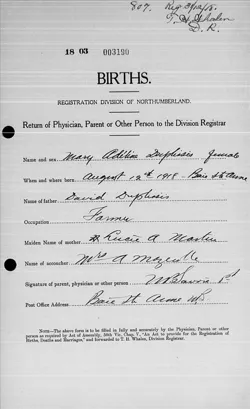 807. Reg 3/12/18.
T. B. Whalen
D. R.
18 03 003190
BIRTHS.
REGISTRATION DIVISION OF NORTHUMBERLAND.
Return of Physician, Parent or Other Person to the Division Registrar
Name and sex Mary female
When and where born August 12th 1918 - Baie St Anne
Name of father David
Occupation Farmer
Maiden Name of mother A Martin
Name of accoucher Mrs A
Signature of parent, physician or other person
Post Office Address Baie St Anne NB
NOTE.—The above form is to be filled in fully and accurately by the Physician, Parent or other person as required by Act of Assembly, 50th Vic. Chap. 7, "An Act to provide for the Registration of Births, Deaths and Marriages," and forwarded to T. B. Whalen, Division Registrar.